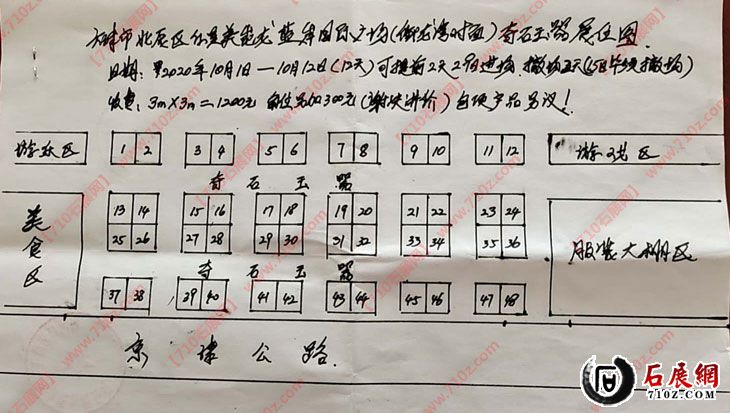 天津市北辰区红星美凯龙蓝岸国际广场(御龙湾对面)奇石玉器展位图
日期:2020年10月1日—10月12日(12天)可提前2天29日进场 撤场
收费:3m×3m=1200元 角位另加300元(谢决讲价)包项产品另议!
游玩区 1 2 3 4 5 6 7 8 9 10 11 12 游戏区
奇石玉器
13 14 15 16 17 18 19 20 21 22 23 24
美食区 服装大棚区
25 26 27 28 29 30 31 32 33 34 35 36
奇石玉器
37 38 39 40 41 42 43 44 45 46 47 48
京津公路
石展網
710z.com
【710石展网】www.710z.com